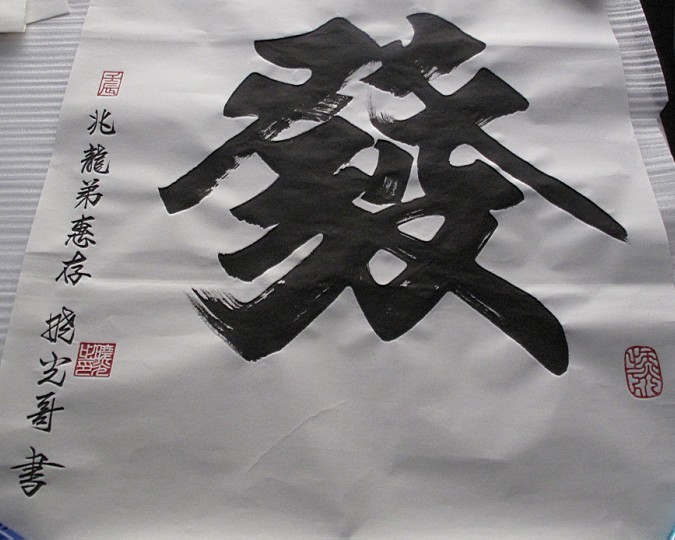 發
兆龍弟惠存
曉光哥書